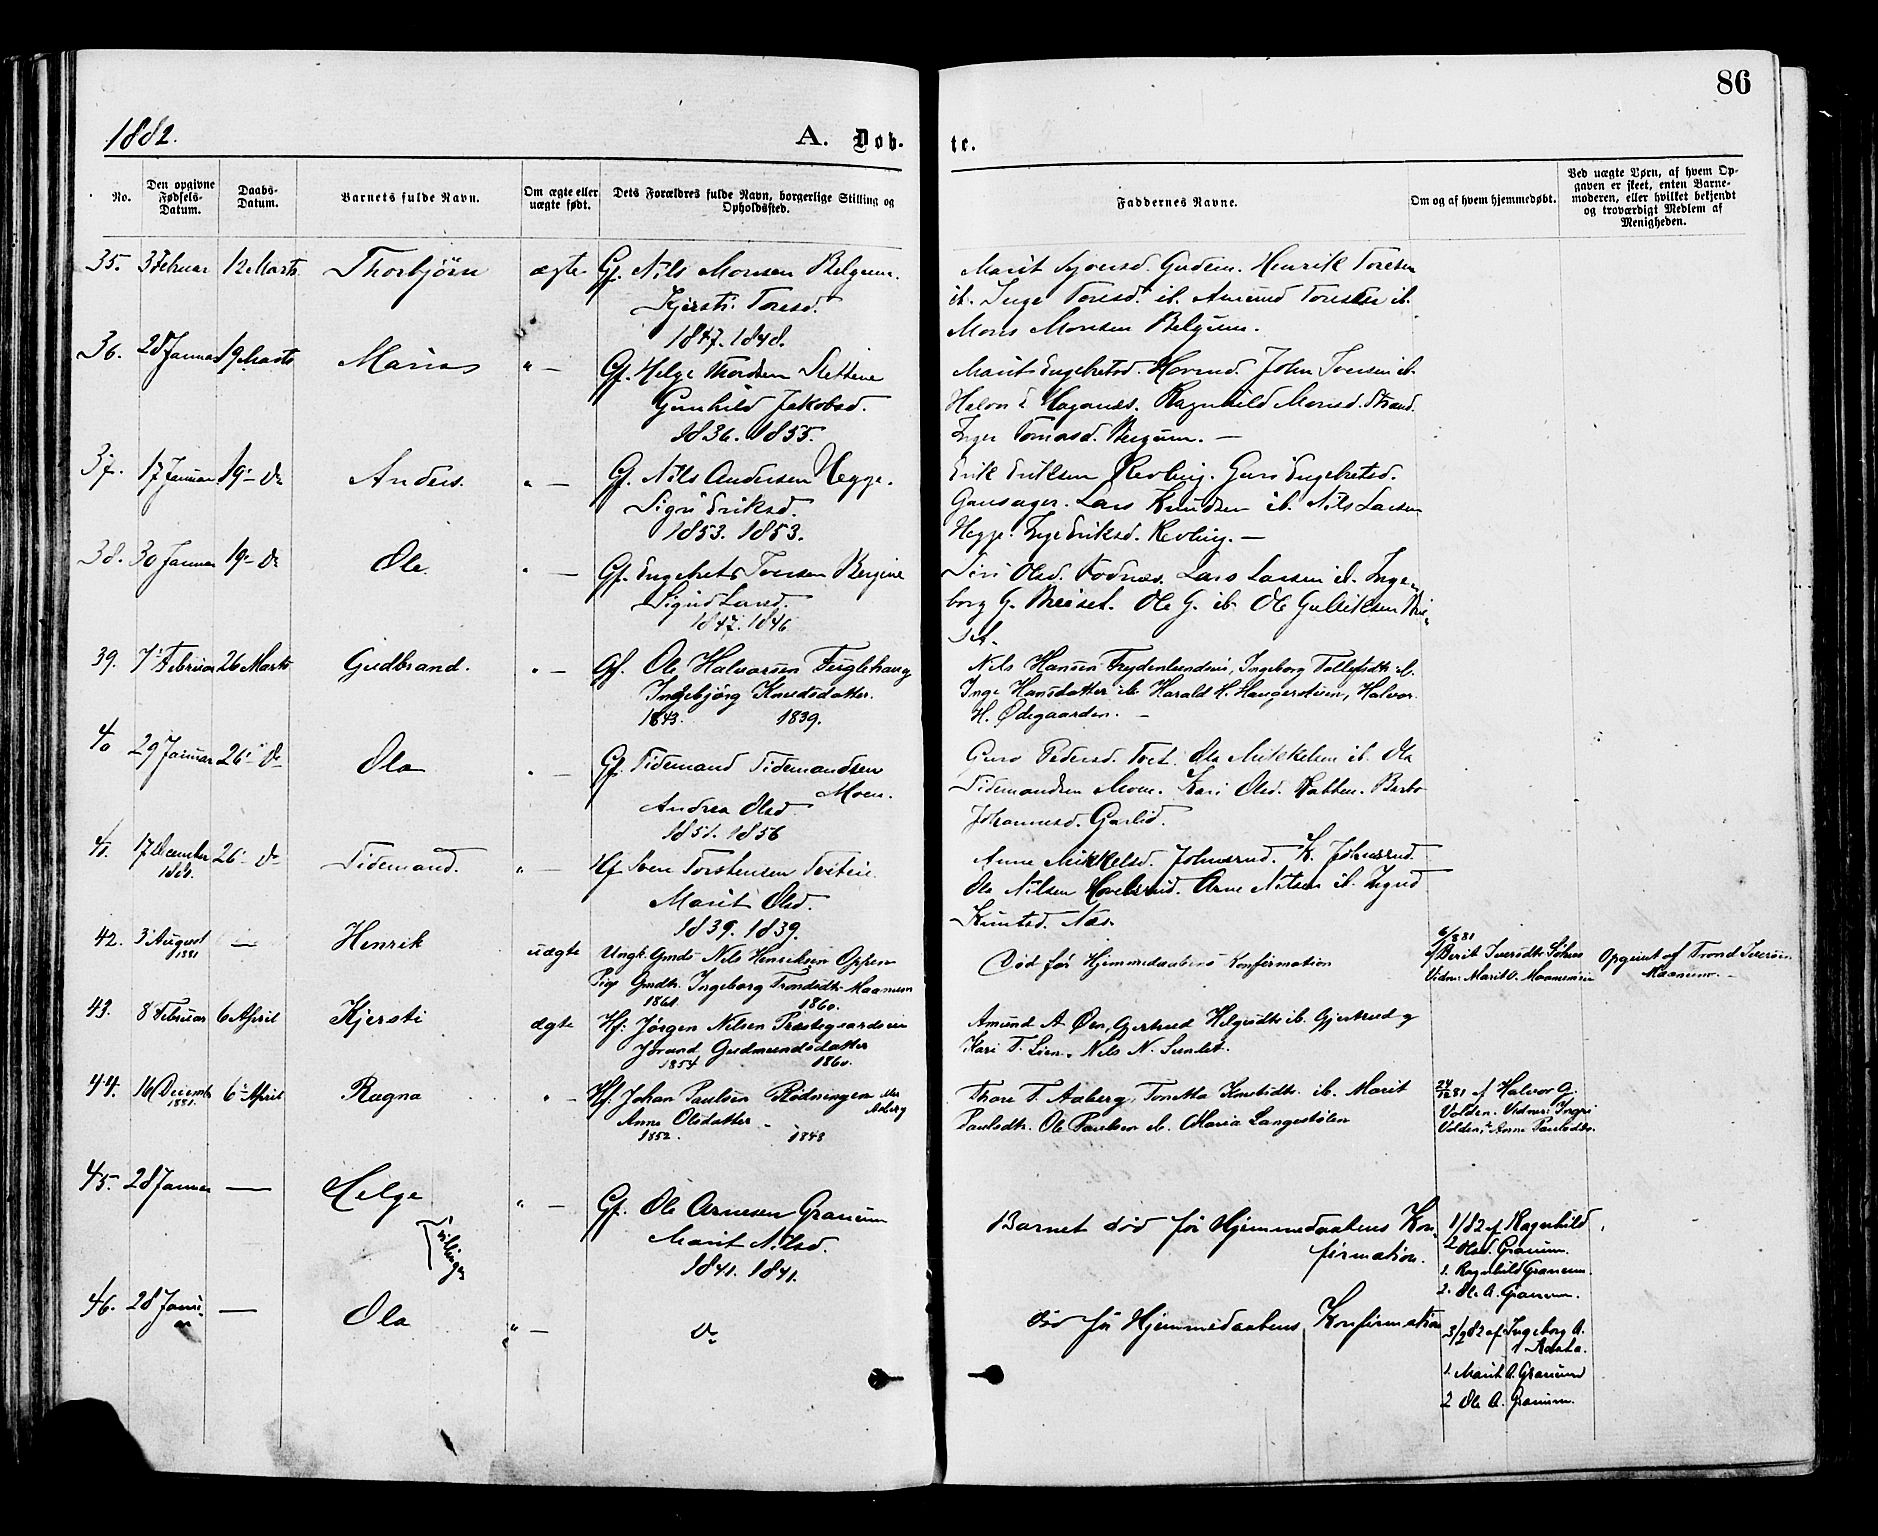 86
1882.
A. Døb-
te.
No.
Den opgivne Fødsels-Datum.
Daabs-Datum.
Barnets fulde Navn.
Om ægte eller uægte født.
Dets Forældres fulde Navn, borgerlige Stilling og Opholdssted.
Faddernes Navne.
Om og af hvem hjemmedøbt.
Ved uægte Børn, af hvem Opgaven er skeet, enten Barnemoderen, eller hvilket bekjendt og troværdigt Medlem af Menigheden.
35. 3 Februar 12 Marts Thorbjörn ægte Gf. Nils Monsen Belgum.
Kjersti Toresd.
1847. 1848.
Marit Gudem. Henrik Toresen
ib. Inge Toresd. ib. Amund Toresen ib.
Mons Monsen Belgum.
36. 28 Januar 19 Marts Marius " — Gf. Helge Thordsen Slettene
Gunhild Jakobsd.
1836. 1855.
Marit Engebretsd. John Iversen ib.
Ragnhild Monsd. Strand.
Inger Tomasd. Bergum. —
37. 17 Januar 19 - do Anders. " — Gf. Nils Andersen Hegge.
Sigri Eriksd.
1853. 1853.
Erik Eriksen Revling. Guri Engebretsd.
Gausager. Lars Knudsen ib. Nils Larsen
Hegge. Inge Eriksd. Revling. —
38. 30 Januar 19 - do Ole. " — Gf. Engebret Iversen Bergene
Sigrid Larsd.
1847. 1846
Siri Olsd. Fodnæs. Lars Larsen ib. Inge-
borg G. Breiset. Ole G. ib. Ole Gulliksen Brei-
set.
39. 7 Februar 26 Marts Gudbrand. " — Gf. Ole Halvorsen Fuglehaug
Ingebjörg Knudsdatter.
1843. 1839.
Nils Hansen Frydenlundsei, Ingeborg Tollefsdtr ib.
Inge Hansdatter ib. Harald H. Haugerstuen, Halvor
H. Ødegaarden. —
40 29 Januar 26 - do Ola " — Gf. Tidemand Tidemandsen
Moen.
Andrea Olsd.
1851. 1856
Guro Pedersd. Tvet. Ola Mikkelsen ib. Ola
Tidemandsen Moen. Kari Olsd. Rabben. Barbo
Johannesd. Garlid.
41. 17 December 26 - do Tidemand. " — Hf Iver Torstensen Tveiten
1881.
Marit Olsd.
1839. 1839.
Anne Mikkelsd. Johnsrud. K. Johnsrud.
Ola Nilsen Hovelsrud. Arne Nilsen ib. Ingrid
Knutsd. Næs.
42. 3 August — Henrik uægte Ungk. Gmds Nils Henriksen Oppen
1881
Pige Gmdtr. Ingeborg Trondsdtr. Maanum
1861. 1860.
Död før Hjemmedaabens Konfirmation
6/8 81
af Berit Iversdtr
Vidn: Marit O. Maanumsei
Opgivet af Trond Iversen
Maanum. —
43. 8 Februar 6 April Kjersti ægte Hf: Jörgen Nilsen Præstegaardseie
Jorand Gudmundsdatter
1854 1860.
Amund A. Øen, Gjertrud Helgesdtr ib. Gjertrud og
Kari T. Lien. Nils N. Sundet.
44. 16 Decemb 6 April Ragna " — Hf: Johan Paulsen Rødningen eller
1881.
Aaberg
Anne Olsdatter.
1852. 1848
Thore T. Aaberg, Tonetta Knutsdtr. ib. Marit
Paulsdtr. Ole Paulsen ib. Maria Langestölen
24/12 81 af Halvor G.
Volden. Vidner: Ingri
Volden, & Anne Paulsdtr.
45. 28 Januar — Helge " — Gf. Ole Arnesen Granum
Tvillinger
Marit Nilsd.
1841. 1841.
Barnet död før Hjemmedaabens Kon-
firmation.
1/2 82 af Ragnhild
Olsd. Granum.
1. Ragnhild Granum.
2. Ole A. Granum.
46. 28 Janu- — Ola " — do
ar
död før Hjemmedaabens Konfirmation
3/2 82 af Ingeborg A.
1 Marit A. Granum
2 Ole A. Granum.